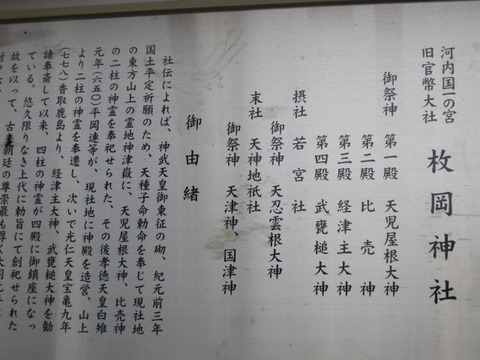 河内国一の宮
旧官幣大社
枚岡神社
御祭神 第一殿 天児屋根大神
第二殿 比売神
第三殿 経津主大神
第四殿 武甕槌大神
摂社 若宮社
御祭神 天忍雲根大神
末社 天神地祇社
御祭神 天津神、国津神
御由緒
社伝によれば、神武天皇御東征の砌、紀元前三年
国土平定祈願のため、天種子命勅命を奉じて現社地
の東方山上の霊地神津嶽に、天児屋根大神、比売神
の二柱の神霊を奉祀せられた、その後孝徳天皇白雉
元年(六五〇)平岡連等が、現社地に神殿を造営、山上
より二柱の神霊を奉遷し、次いで光仁天皇宝亀九年
(七七八)香取鹿島より、経津主大神、武甕槌大神を勧
請奉斎して以来、四柱の神霊が四殿に御鎮座になっ
ている。悠久限りなき上代に勅旨にて創祀せられた
故を以って、古来朝廷の尊崇最も